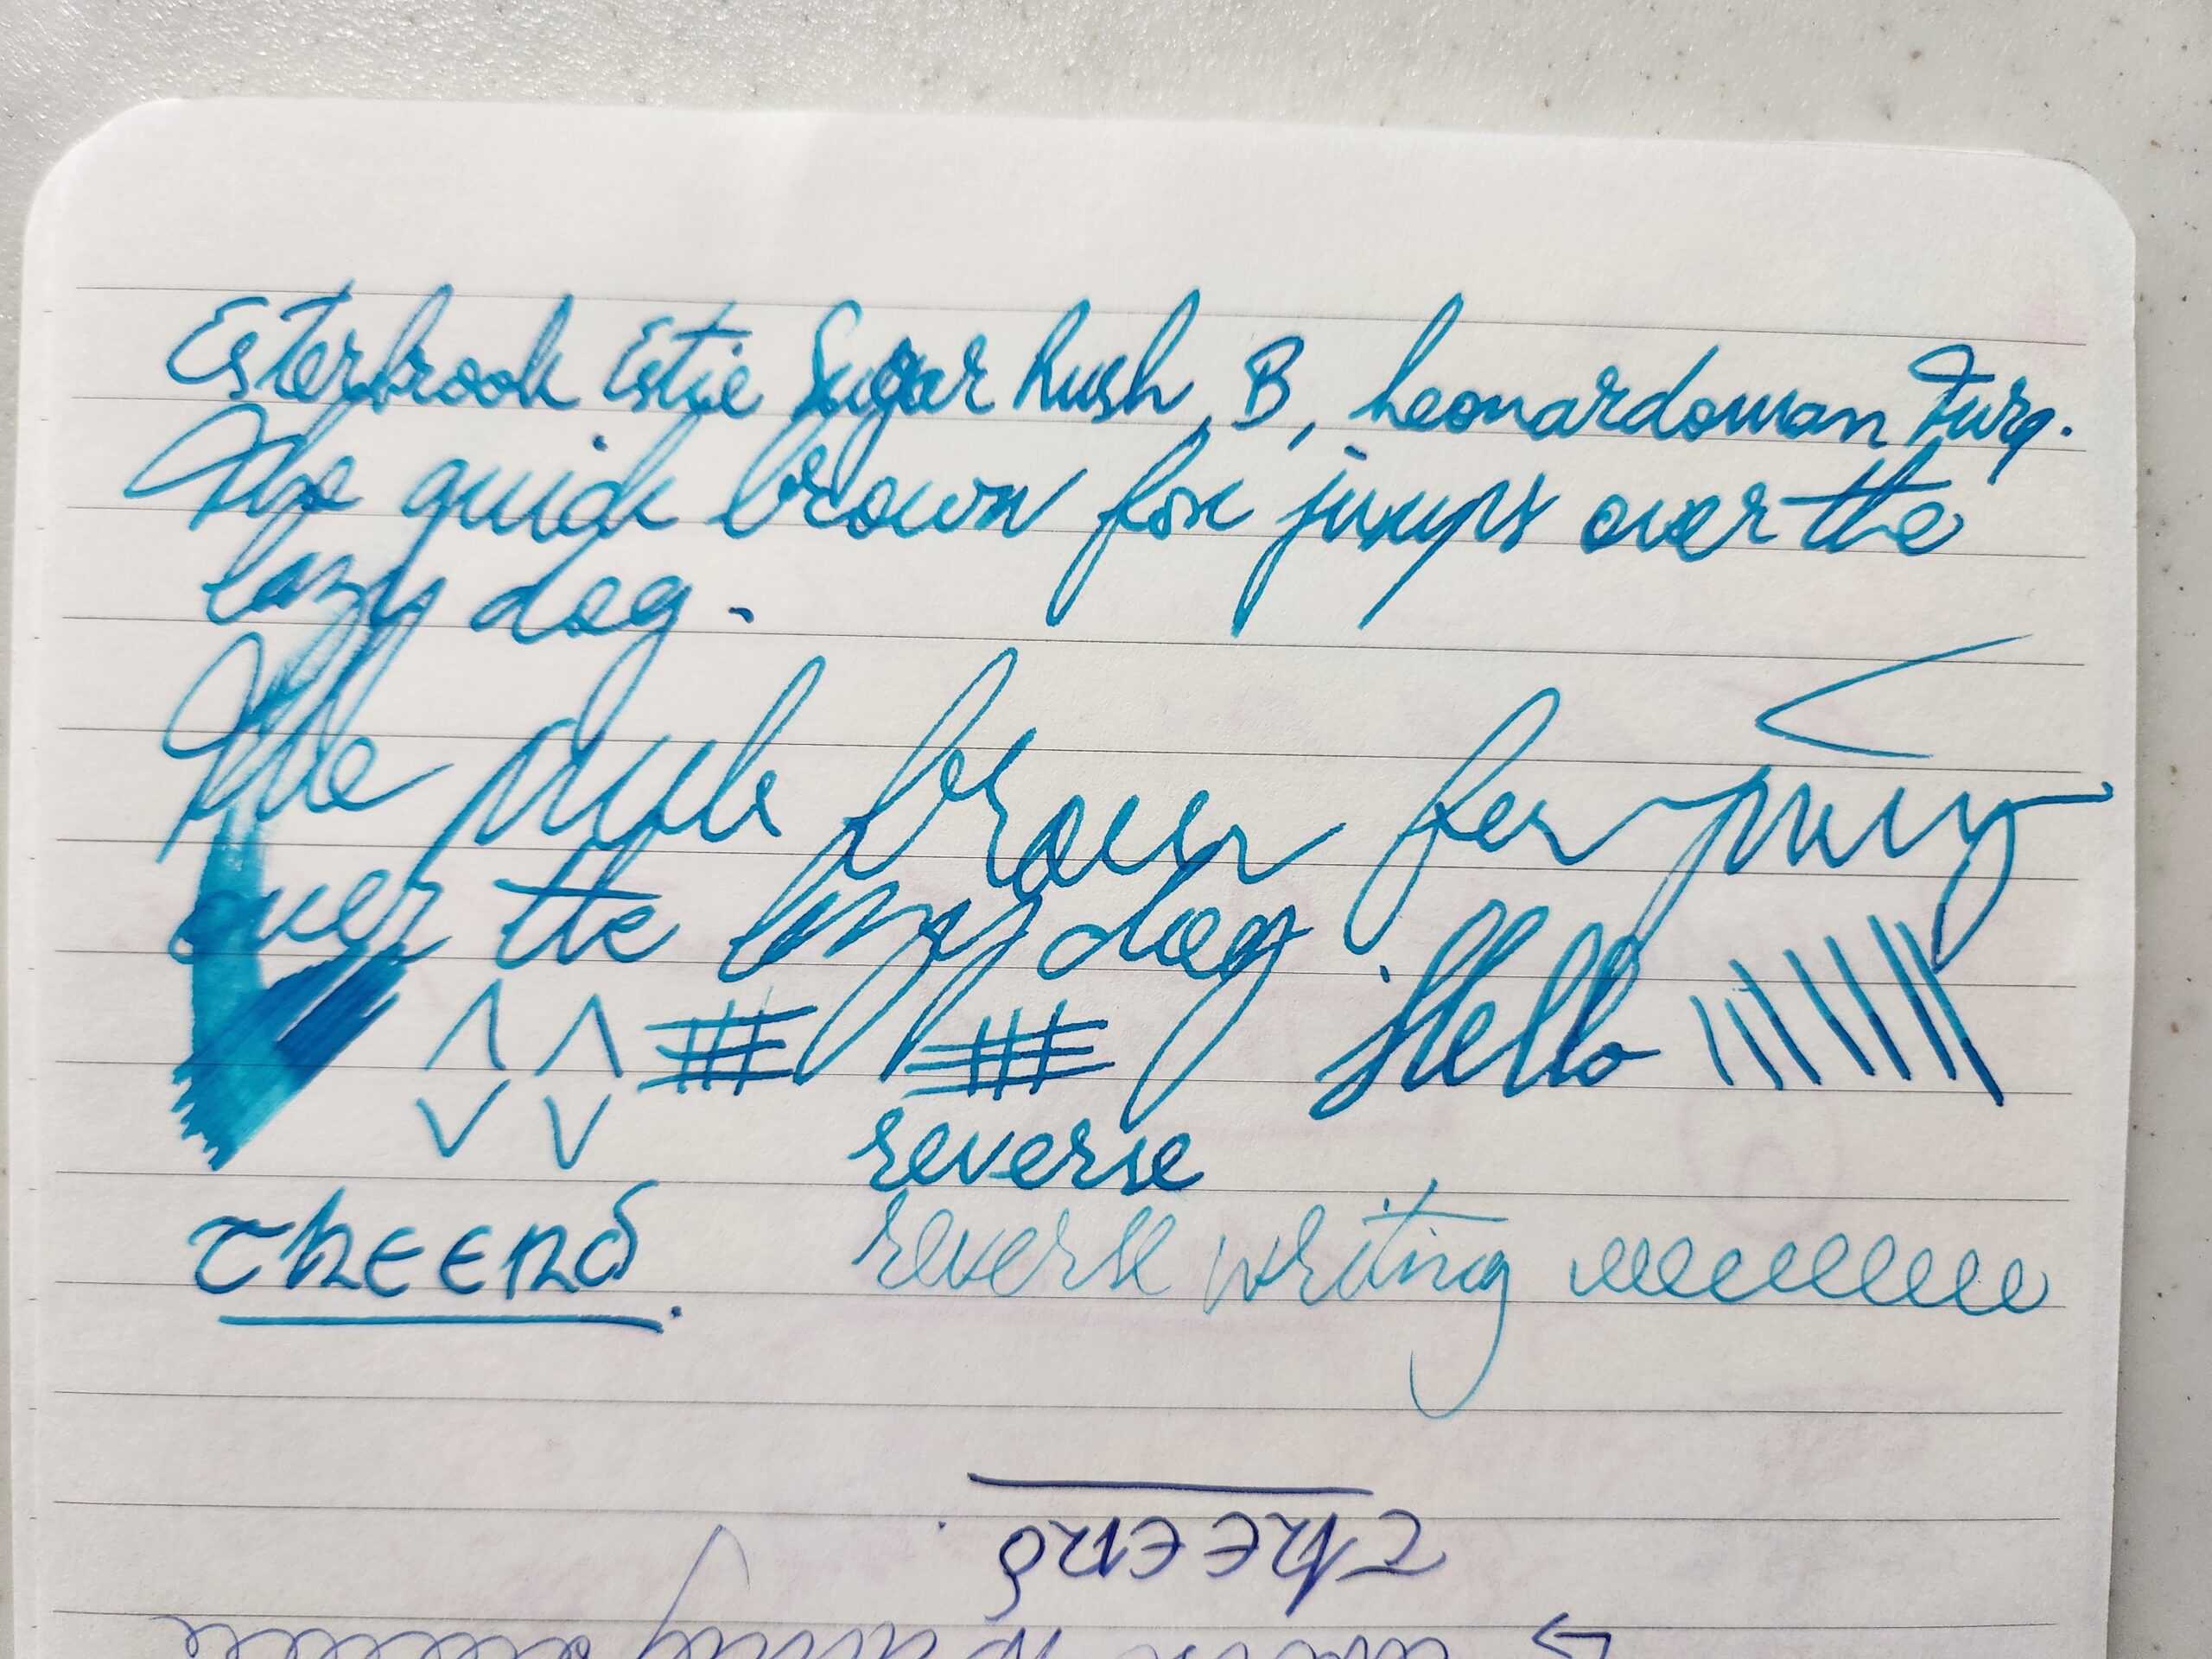 Esterbrook Estie Sugar Rush, B, Leonardoman Turq.
The quick brown fox jumps over the
lazy dog.
The quick brown fox jumps
over the lazy dog. Hello
reverse
THE END.
reverse writing eeeeeeeeee
THE END.